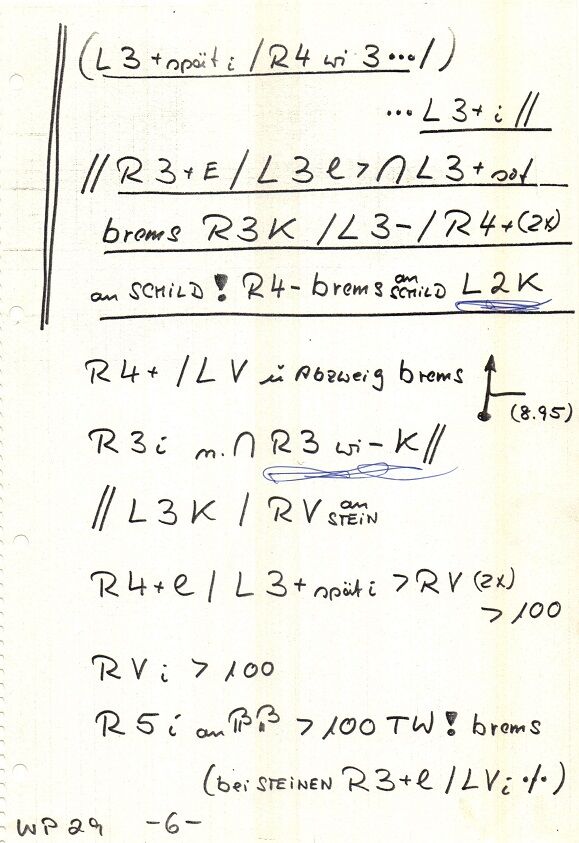 (L3+spät i / R4 wi 3.../)
...L3+ i //
// R3+E / L3e > ∩ L3+ sof
brems R3K / L3- / R4+ (2x)
an SCHILD! R4- brems an SCHILD L2K
R4+ / LV ü Abzweig brems
(8.95)
R3i n. ∩ R3 wi - K //
// L3K / RV an STEIN
R4+e / L3+ spät i > RV (2x)
> 100
RV i > 100
R5 i an > 100 TW! brems
(bei STEINEN R3+e / LVi ·/·)
WP 29 -6-